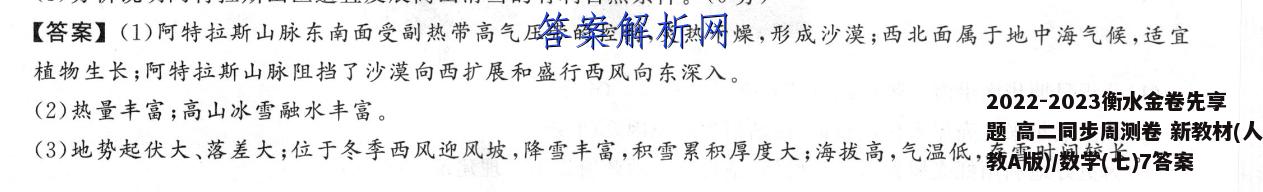 【答案】(1)阿特拉斯山脉东南面受副热带高气压带的控制,炎热干燥,形成沙漠;西北面属于地中海气候,适宜
答案解析网
植物生长;阿特拉斯山脉阻挡了沙漠向西扩展和盛行西风向东深入。
(2)热量丰富;高山冰雪融水丰富。
(3)地势起伏大、落差大;位于冬季西风迎风坡,降雪丰富,积雪累积厚度大;海拔高,气温低,存雪时间较长
2022-2023衡水金卷先享
题 高二同步周测卷 新教材(人
教A版)/数学(七)7答案